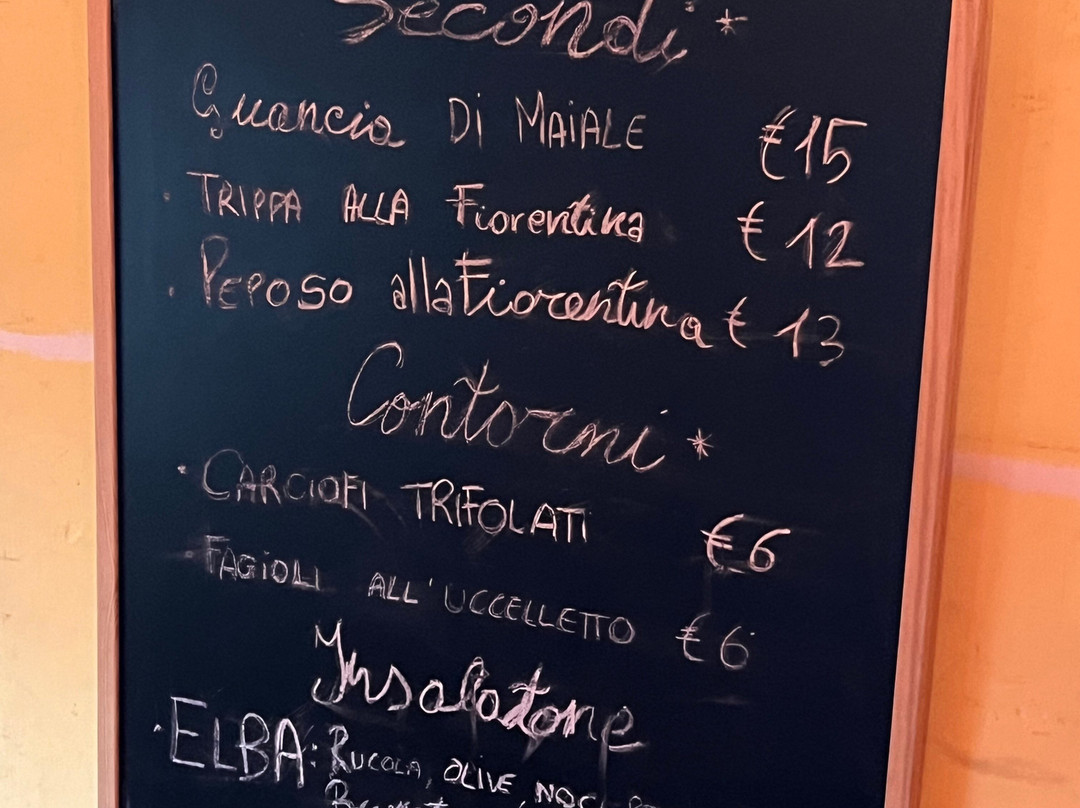 Secondi*
Guancia Di MAiALE €15
· TRIPPA ALLA Fiorentina € 12
· PEPOSO alla Fiorentina € 13
Contorni *
· CARCIOFI TRIFOLATI €6
· FAGiOLI ALL'UCCELLETTO €6
Insalatone
· ELBA: RUCOLA, OLIVE